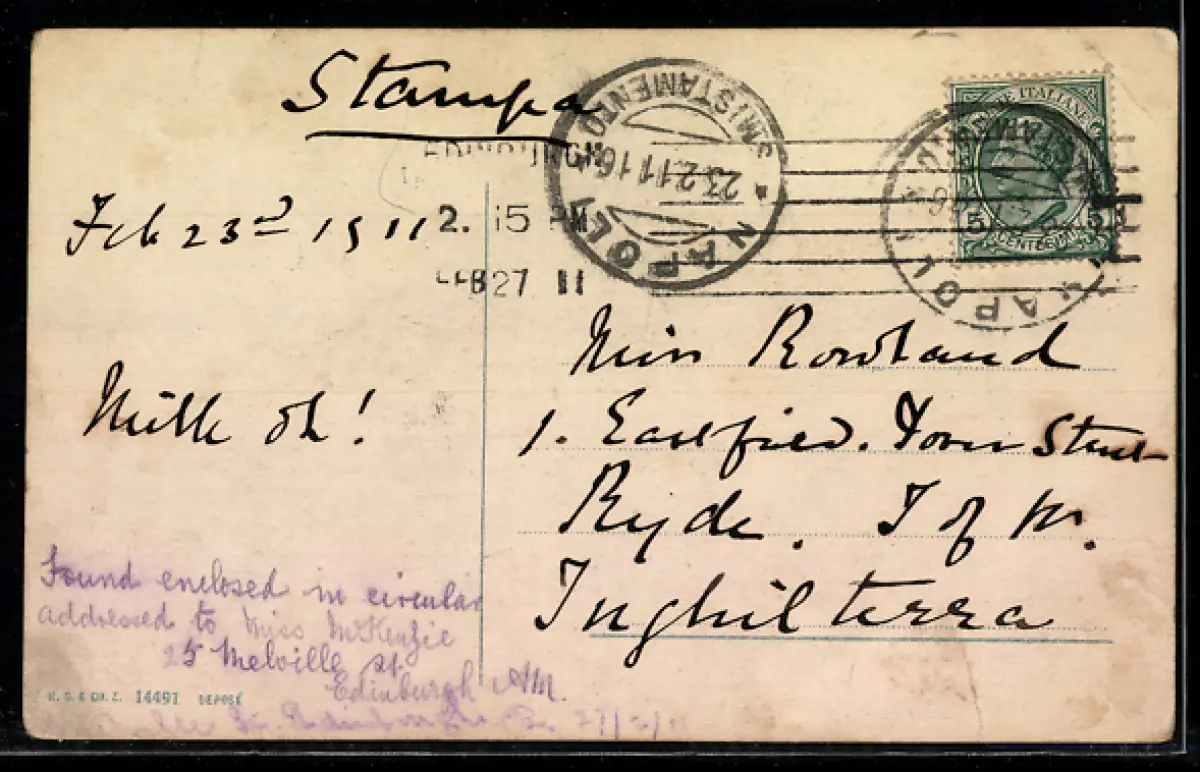 Stampa
Feb 23rd 1911
EDINBURGH
2. 15 PM
FEB 27 11
NAPOLI
SMISTAMENTO
23.2 11 16
POSTE ITALIANE
5 CENTESIMI 5
NAPOLI
Miss Rowland
1. Eastfield. Dover Street
Ryde. I of W.
Inghilterra
Mille oh!
Found enclosed in circular
addressed to Miss McKenzie
25 Melville st
Edinburgh AM.
St. Edinburgh 27/2/11
14491 DEPOSÉ